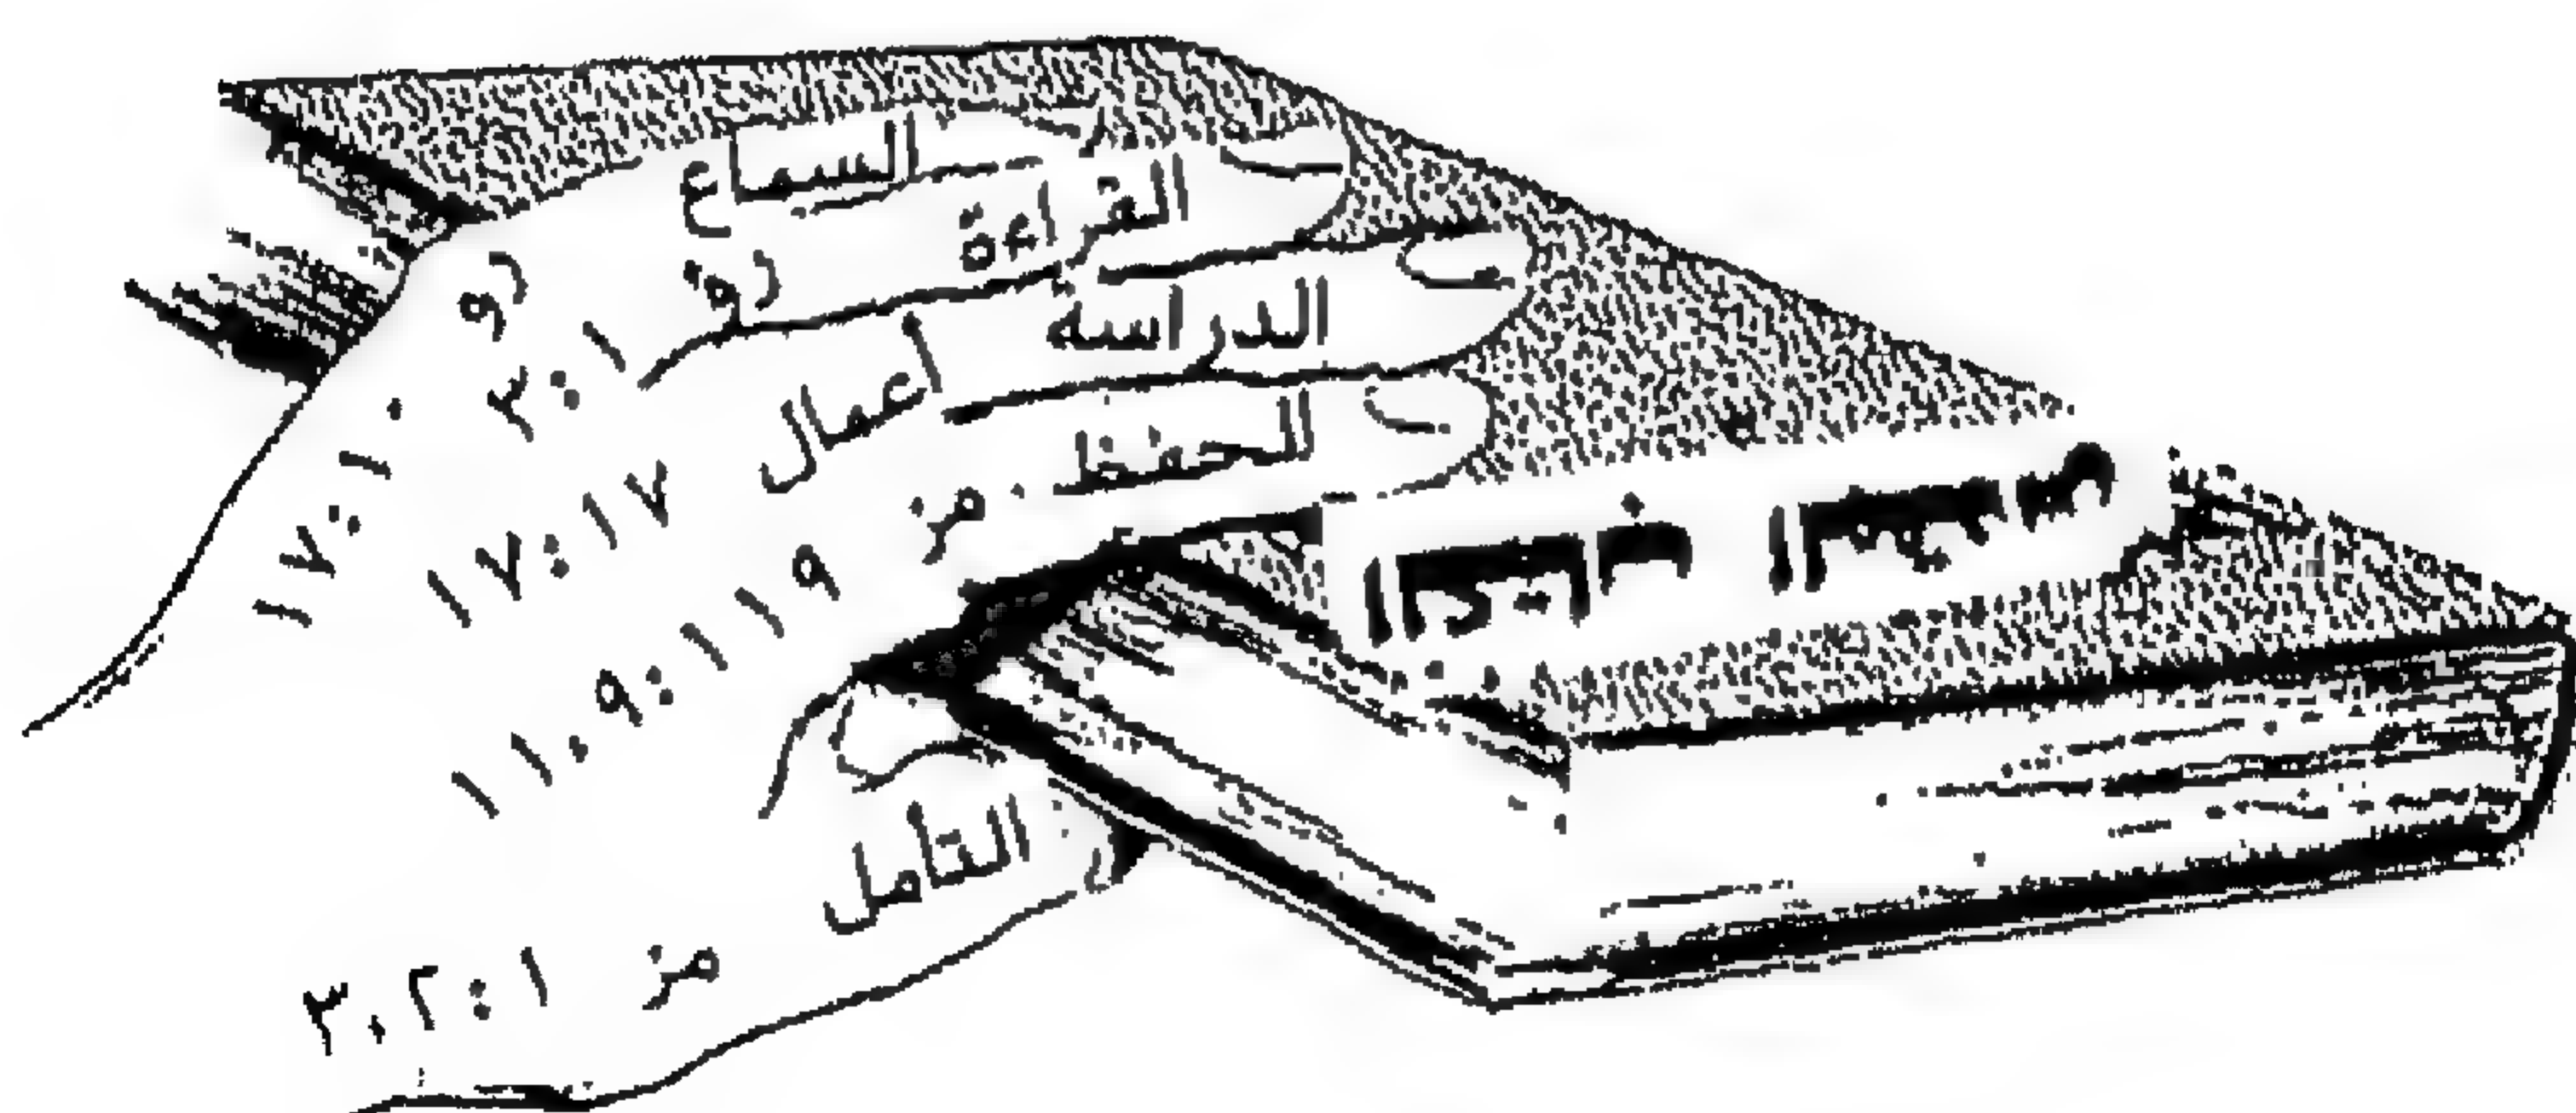 السماع رو ١٠:١٧
القراءة رؤ ١:٣
الدراسة أعمال ١٧:١٧
الحفظ مز ١١٩:٩، ١١
التأمل مز ١:٢، ٣
الكتاب المقدس